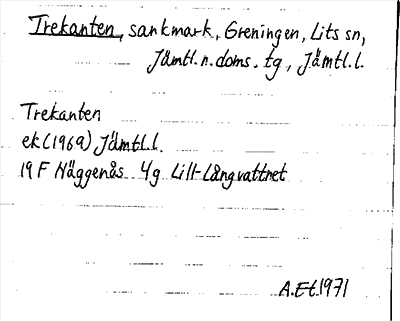 Trekanten, sankmark, Greningen, Lits sn,
Jämtl. n. doms. tg, Jämtl. l.
Trekanten
ek (1969) Jämtl. l.
19 F Häggenås 4g Lill-Långvattnet
A.Et.1971